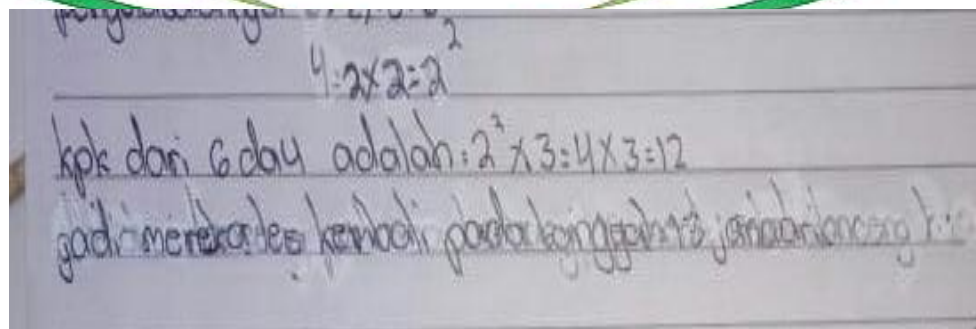 4=2x2=2²
kpk dari 6 dan 4 adalah: 2² x 3 = 4 x 3 = 12
jadi mereka les kembali pada tanggal 13 januari